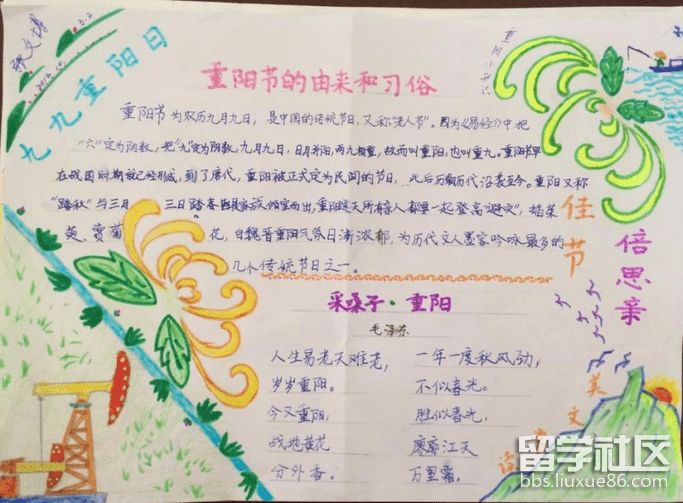 九九重阳日
重阳节的由来和习俗
重阳节为农历九月九日，是中国的传统节日，又称“老人节”。因为《易经》中把
“六”定为阴数，把“九”定为阳数，九月九日，日月并阳，两九相重，故而叫重阳，也叫重九。重阳节早
在战国时期就已经形成，到了唐代，重阳被正式定为民间的节日，此后历朝历代沿袭至今。重阳又称
“踏秋”与三月 三日踏春皆是家族倾室而出，重阳这天所有亲人都要一起登高“避灾”，插茱
萸、赏菊 花，自魏晋重阳气氛日渐浓郁，为历代文人墨客吟咏最多的
几个传统节日之一。
佳节
倍思亲
采桑子·重阳
毛泽东
人生易老天难老，
岁岁重阳。
今又重阳，
战地黄花
分外香。
一年一度秋风劲，
不似春光。
胜似春光，
廖廓江天
万里霜。
美文
留学社区
bbs.liuxue86.com